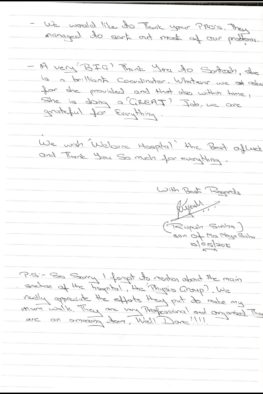 - We would like to Thank your PRO's. They
managed to sort out most of our problems.
- A very 'BIG' Thank You to Santosh, she
is a brilliant Coordinator. Whatever we
for she provided and that also within time,
She is doing a 'GREAT' Job, we are
grateful for Everything.
We wish 'Welcare Hospital' the Best of luck
and Thank You So much for everything.
With Best Regards
son of Mrs
P.S:- So Sorry I forgot to mention about the main
section of the Hospital, the 'Physio Group'. We
really appreciate the efforts they put to make my
mum walk. They are very Professional and organised They
are an amazing team, Well Done!!!!